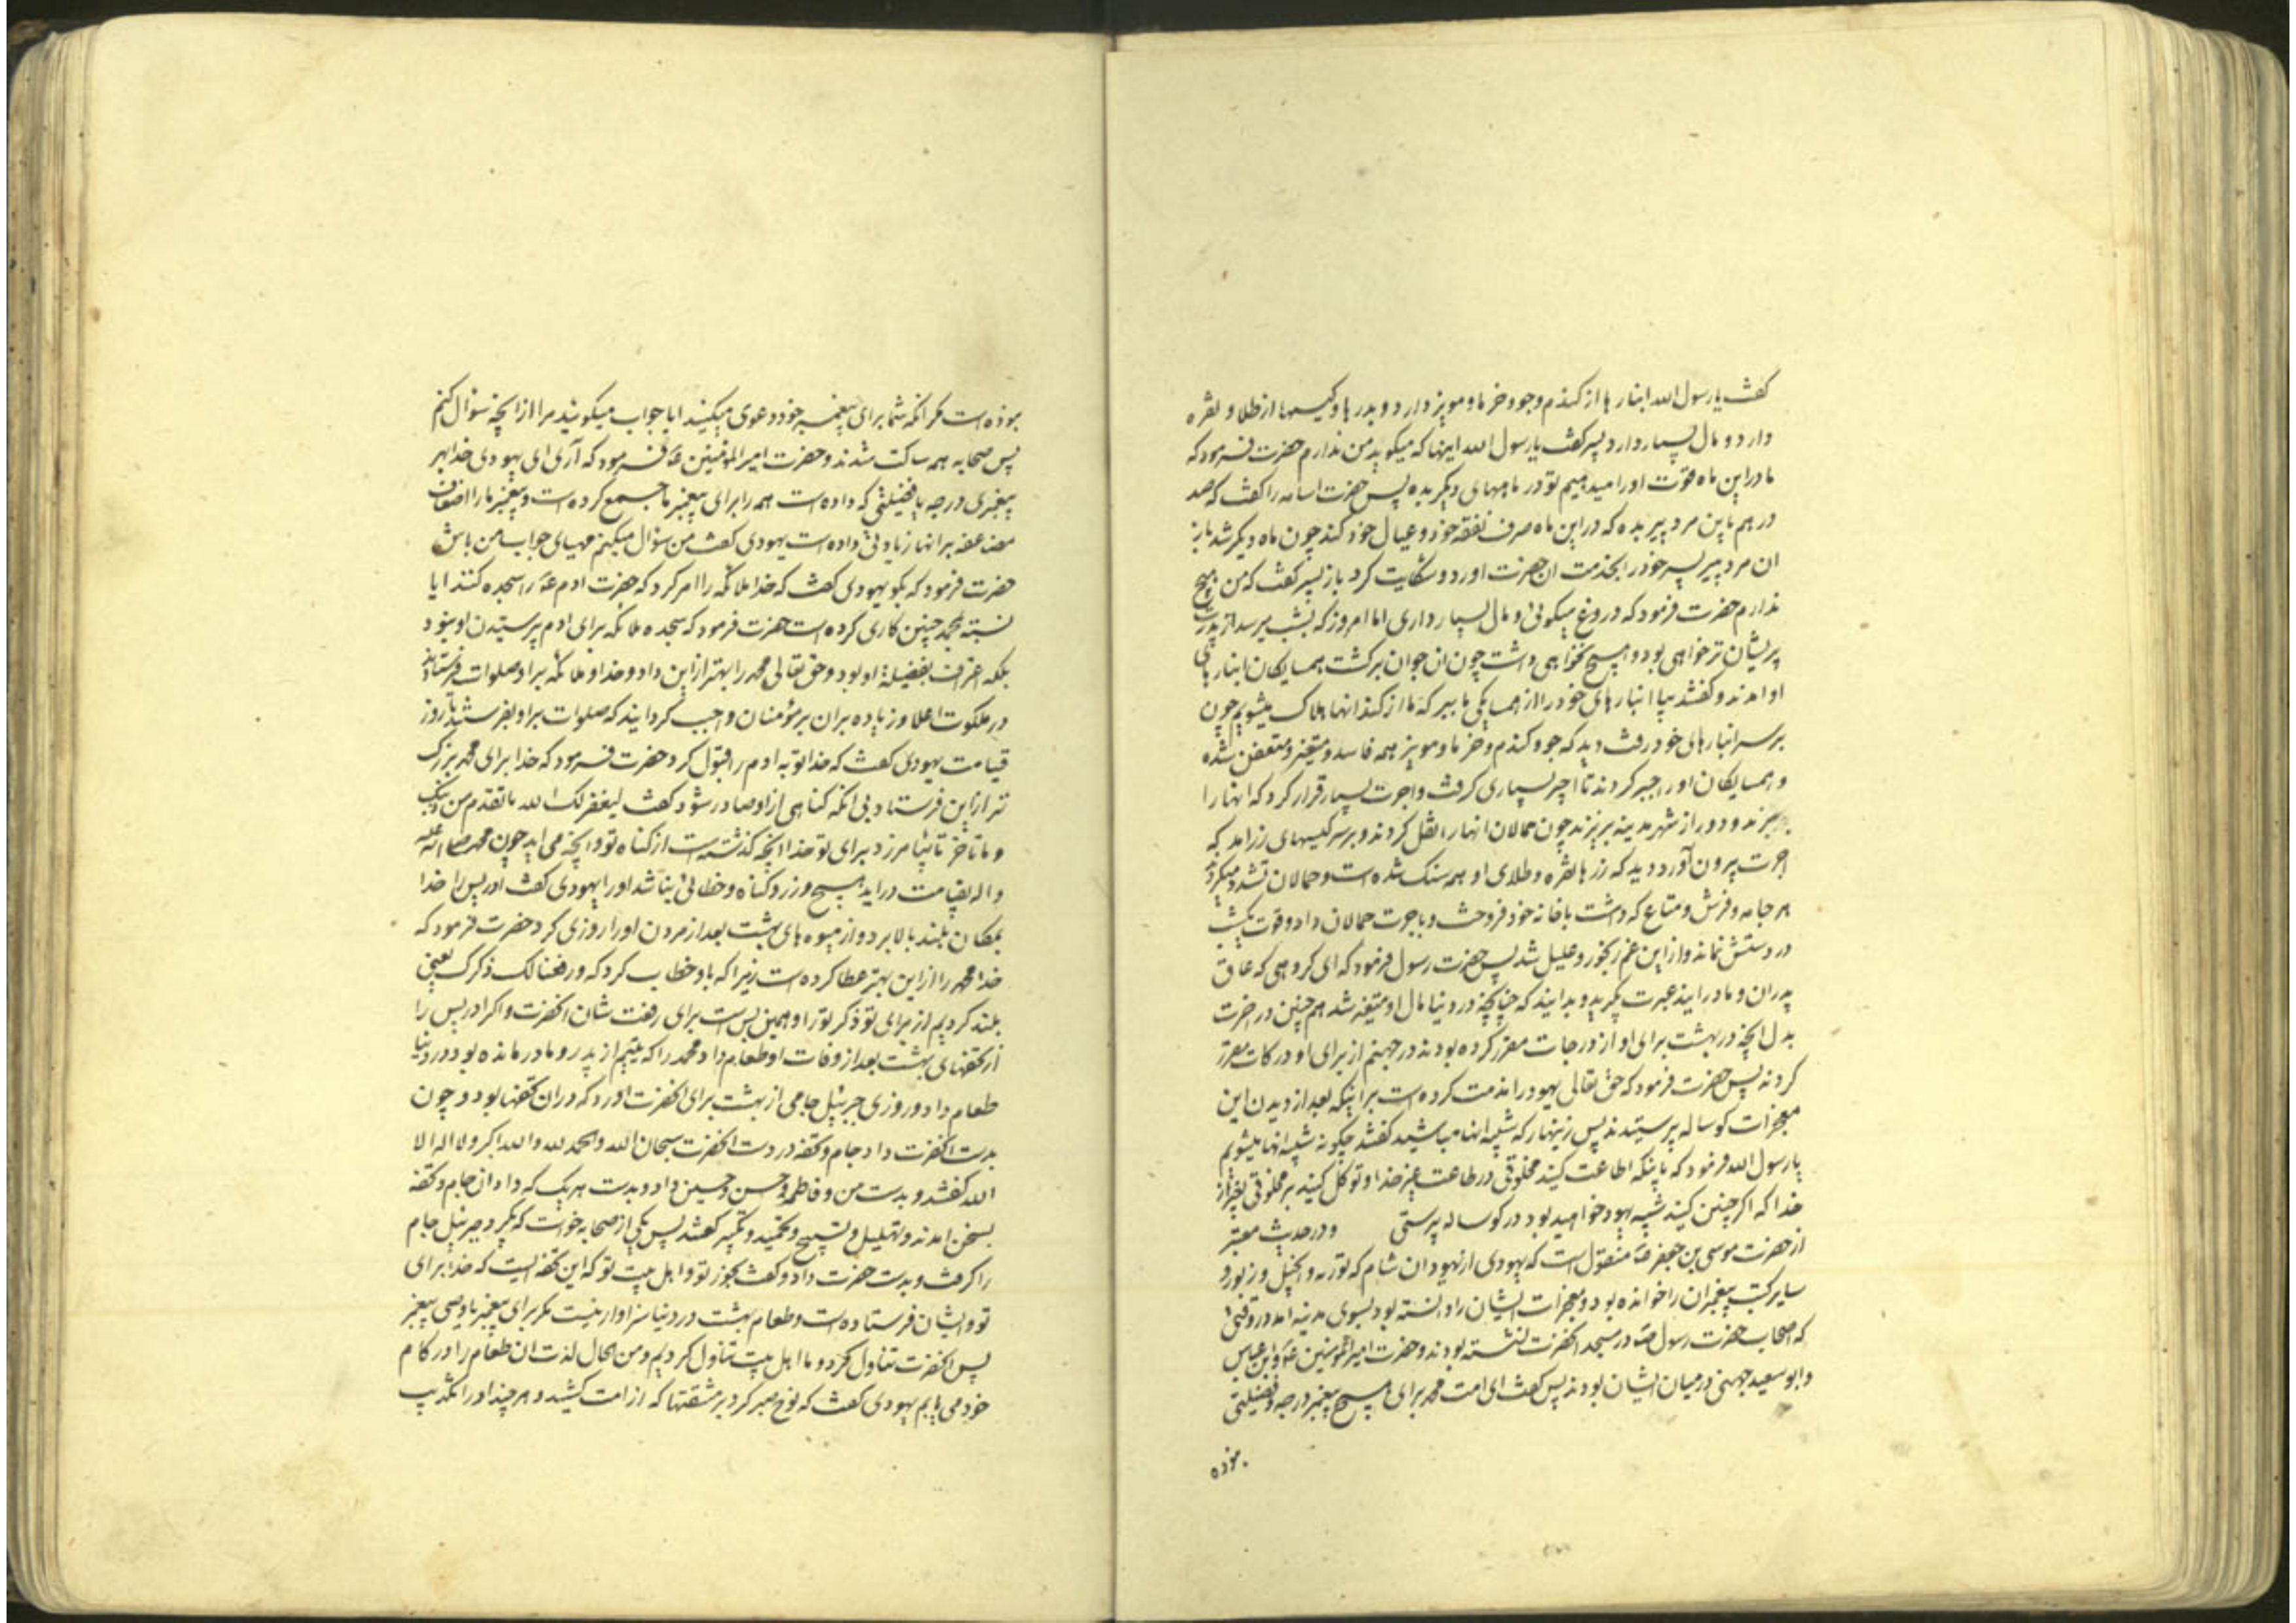 کفت یا رسول الله انبارها از کندم و جو و خرما و مویز دارد و بدرها و کیسها از طلا و نقره
دارد و مال بسیار دارد پسر کفت یا رسول الله اینها که میکوید من ندارم حضرت فرمود که
ما در این ماه قوت او را میدهیم تو در ماههای دیکر بده پس حضرت اسامه را کفت که صد
درهم باین مرد پیر بده که در این ماه صرف نفقه خود و عیال خود کند چون ماه دیکر شد باز
ان مرد پیر پسر خود را بخدمت ان حضرت اورد و شکایت کرد باز پسر کفت که من هیچ
ندارم حضرت فرمود که دروغ میکوئی و مال بسیار داری اما امروز که بشب میرسد از پدرت
پریشان تر خواهی بود و هیچ نخواهی داشت چون ان جوان برکشت همسایکان انبارهای
او امدند و کفتند بیا انبارهای خود را از همسایکی ما ببر که ما از کند انها هلاک میشویم چون
بر سر انبارهای خود رفت دید که جو و کندم و خرما و مویز همه فاسد و متغیر و متعفن شده
و همسایکان او را جبر کردند تا اجیر بسیاری کرفت و اجرت بسیار قرار کرد که انها را
ببرند و دور از شهر مدینه بریزند چون حمالان انها را نقل کردند و بر سر کیسهای زر امد که
اجرت بیرون آورد دید که زرها نقره و طلای او همه سنک شده است و حمالان تشدد میکردند
هر جامه و فرش و متاع که داشت با خانه خود فروخت و باجرت حمالان داد و قوت یکشب
در دستش نماند و از این غم رنجور و علیل شد پس حضرت رسول فرمود که ای کروهی که عاق
پدران و مادرانید عبرت بکیرید و بدانید که چنانچه در دنیا مال او متغیر شد هم چنین در اخرت
بدل انچه در بهشت برای او از درجات مقرر کرده بودند در جهنم از برای او درکات مقرر
کردند پس حضرت فرمود که حق تعالی یهود را مذمت کرده است برای اینکه بعد از دیدن این
معجزات کوساله پرستیدند پس زینهار که شبیه انها مباشید کفتند چکونه شبیه انها میشویم
یا رسول الله فرمود که باینکه اطاعت کنید مخلوقی در طاعت غیر خدا و توکل کنید بر مخلوقی بغیر از
خدا که اکر چنین کنید شبیه یهود خواهید بود در کوساله پرستی و در حدیث معتبر
از حضرت موسی بن جعفر ع منقولست که یهودی از یهودان شام که توریه و انجیل و زبور و
سایر کتب پیغمبران را خوانده بود و معجزات ایشان را دانسته بود بسوی مدینه امد در وقتی
که اصحاب حضرت رسول ص در مسجد انحضرت نشسته بودند و حضرت امیر المؤمنین ع و ابن عباس
و ابو سعید جهنی در میان ایشان بودند پس کفت ای امت محمد برای هیچ پیغمبر درجه و فضیلتی
نبوده
نبوده است مکر انکه شما برای پیغمبر خود دعوی میکنید ایا جواب میکوئید مرا از انچه سؤال کنم
پس صحابه همه ساکت شدند و حضرت امیر المؤمنین ع فرمود که آری ای یهودی خدا هر
پیغمبری درجه یا فضیلتی که داده است همه را برای پیغمبر ما جمع کرده است و پیغمبر ما را اضعاف
مضاعفه بر انها زیادتی داده است یهودی کفت من سؤال میکنم مهیای جواب من باش
حضرت فرمود که بکو یهودی کفت که خدا ملائکه را امر کرد که حضرت ادم ع را سجده کنند ایا
نسبت بمحمد چنین کاری کرده است حضرت فرمود که سجده ملائکه برای ادم پرستیدن او نبود
بلکه اعتراف بفضیلة او بود و حق تعالی محمد را بهتر از این داد و خدا و ملائکه بر او صلوات فرستادند
در ملکوت اعلا و زیاده بر ان بر مؤمنان واجب کردانید که صلوات بر او بفرستند تا روز
قیامت یهودی کفت که خدا توبه ادم را قبول کرد حضرت فرمود که خدا برای محمد بزرک
تر از این فرستاد بی انکه کناهی از او صادر شود کفت لیغفر لک الله ما تقدم من ذنبک
و ما تاخر تا بیامرزد برای تو خدا انچه کذشته است از کناه تو و انچه می اید چون محمد صلی الله علیه
و اله بقیامت در اید هیچ وزر و کناه و خطائی نباشد او را یهودی کفت ادریس را خدا
بمکان بلند بالا برد و از میوه های بهشت بعد از مردن او را روزی کرد حضرت فرمود که
خدا محمد را از این بهتر عطا کرده است زیرا که باو خطاب کرد که و رفعنا لک ذکرک یعنی
بلند کردیم از برای تو ذکر تو را و همین بس است برای رفعت شان انحضرت و اکر ادریس را
از تحفهای بهشت بعد از وفات او طعام داد محمد را که یتیم از پدر و مادر مانده بود در دنیا
طعام داد و روزی جبرئیل جامی از بهشت برای انحضرت اورد که در ان تحفها بود و چون
بدست انحضرت داد جام و تحفه در دست انحضرت سبحان الله و الحمد لله و الله اکبر و لا اله الا
الله کفتند و بدست من و فاطمه و حسن و حسین داد و بدست هریک که داد ان جام و تحفه
بسخن امدند و تهلیل و تسبیح و تحمید و تکبیر کفتند پس یکی از صحابه خواست که بکیرد جبرئیل جام
را کرفت و بدست حضرت داد و کفت بخور تو و اهل بیت تو که این تحفه ایست که خدا برای
تو و ایشان فرستاده است و طعام بهشت در دنیا سزاوار نیست مکر برای پیغمبر یا وصی پیغمبر
پس انحضرت تناول کرد و ما اهل بیت تناول کردیم و من الحال لذت ان طعام را در کام
خود می یابم یهودی کفت که نوح صبر کرد بر مشقتها که از امت کشید و هر چند او را تکذیب